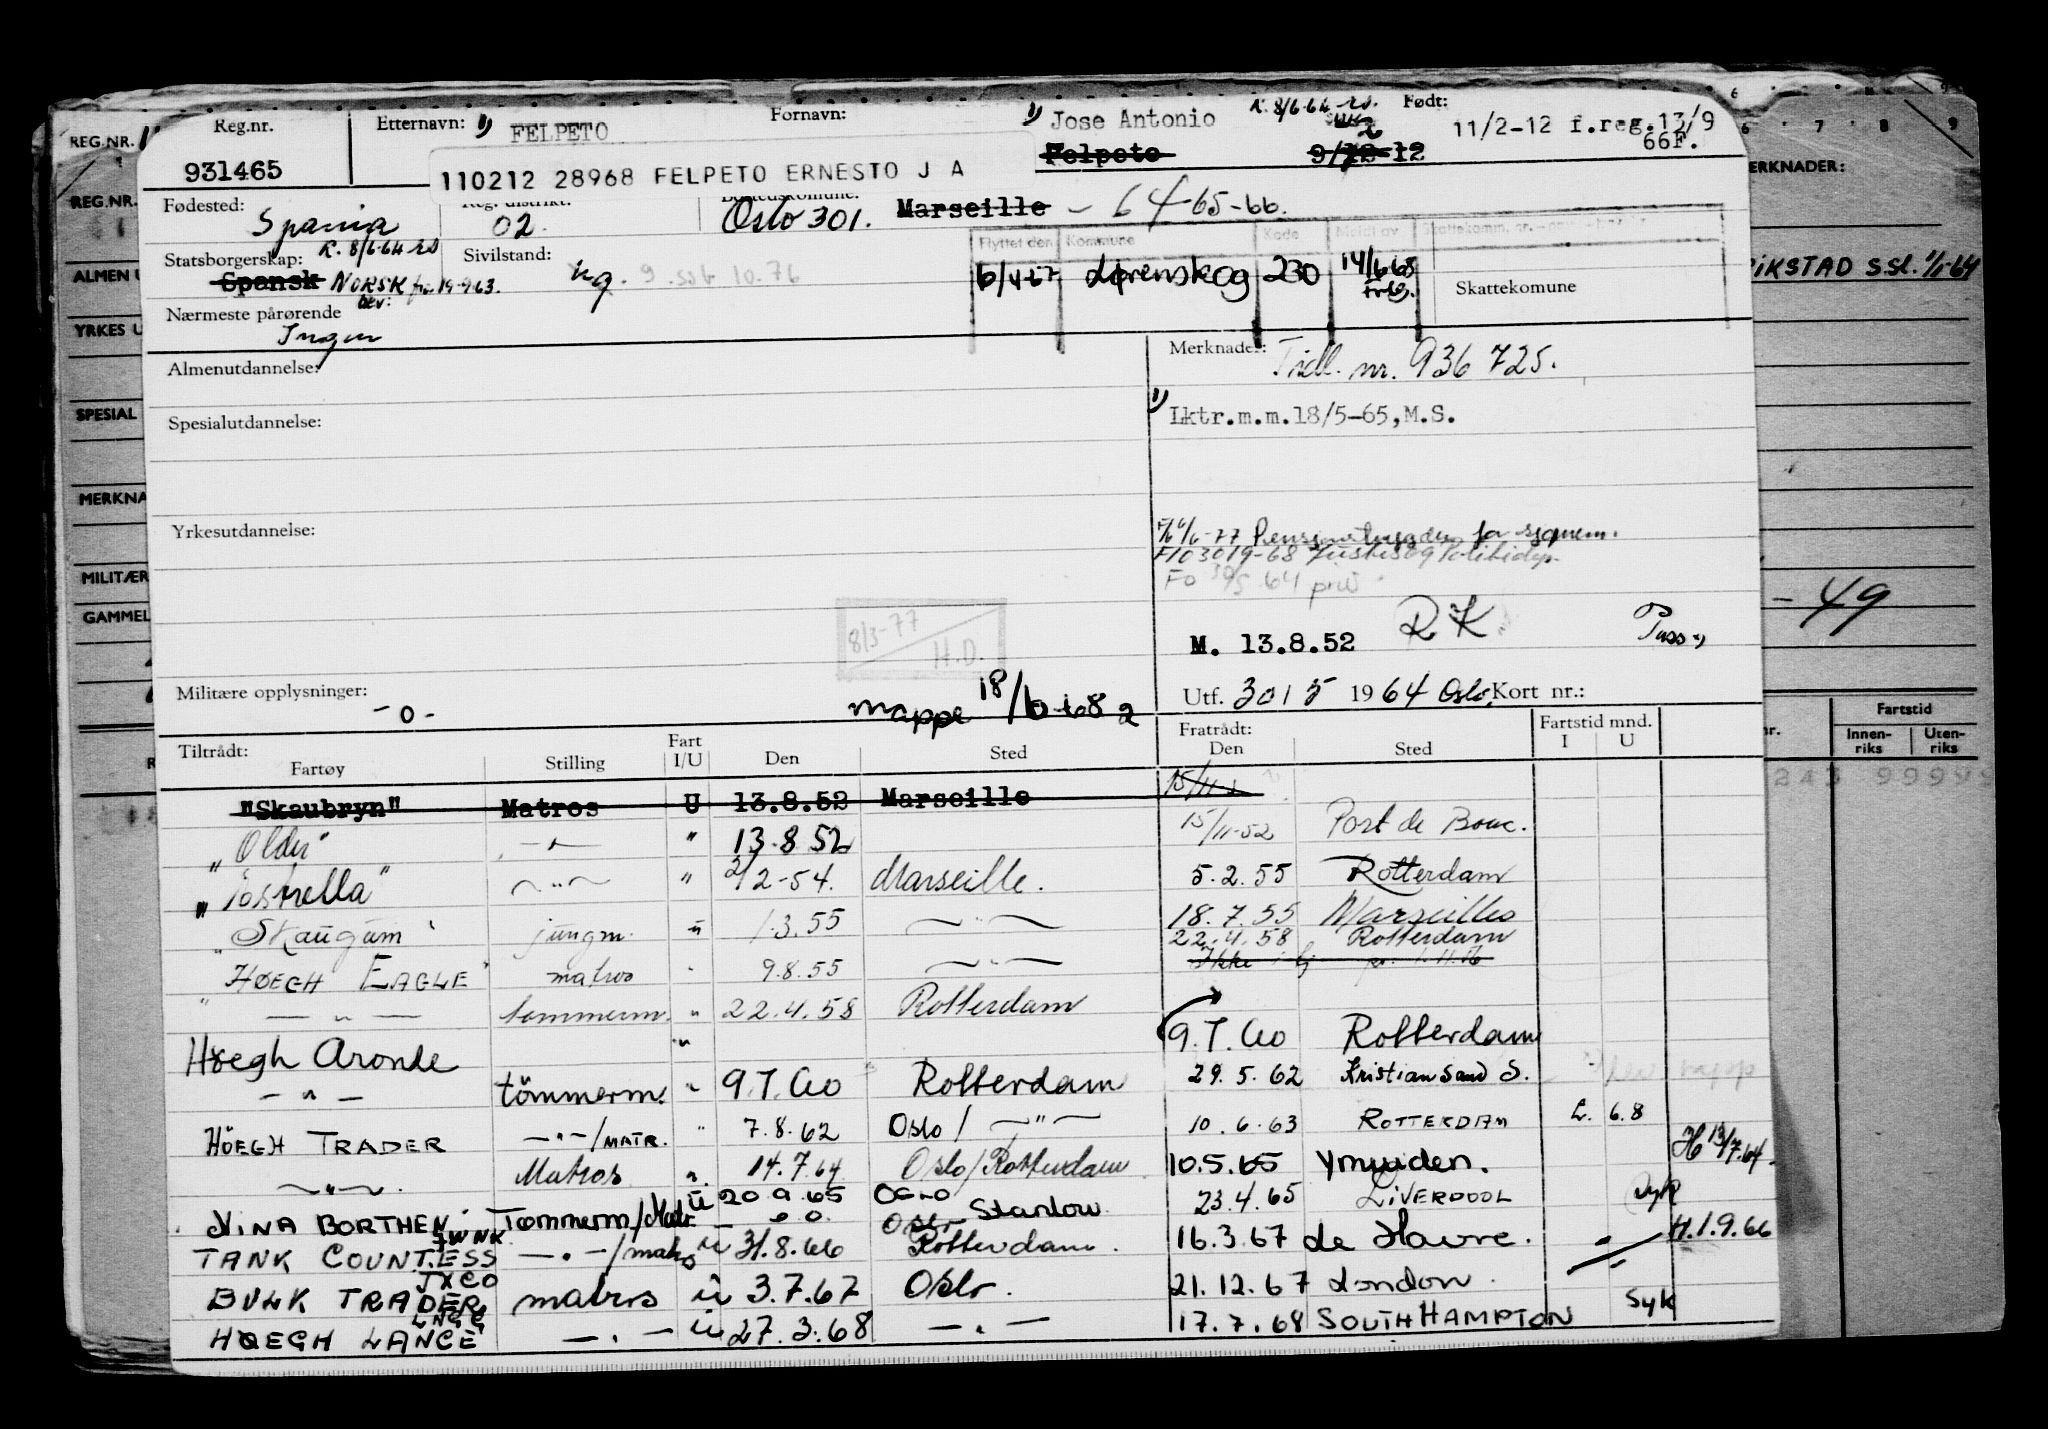 REG.NR.
REG.NR.
ALMEN U
YRKES U
SPESIAL
MERKNA
MILITÆR
GAMMEL
Reg.nr. Etternavn: 1) FELPETO Fornavn: 1) Jose Antonio R. 8/6-64 Født: 11/2-12 f.reg.13/9
66F.
931465 110212 28968 FELPETO ERNESTO J A Felpeto 9/12-12
Fødested: Spania Reg. distrikt: 02 Bostedskommune: Oslo 301. Marseille - 64-65-66.
Statsborgerskap: R. 8/6-64 Sivilstand: ug. 9. 10.76
Spansk NORSK 19-9 63.
Flyttet den Kommune Kode Meldt av
6/4-67 Lørenskog 230 14/6 68 Skattekomune
Nærmeste pårørende bev:
Ingen
Almenutdannelse:
Spesialutdannelse:
Yrkesutdannelse:
Merknader: Tidl. nr. 936 725.
1) Lktr.m.m.18/5-65,M.S.
6/6-77 Pensjonstrygden for sjømenn.
F103019-68 Justis og Politidep.
Fo 30/5 64
8/3-77
H.D.
M. 13.8.52 R K Pass
Militære opplysninger: -0-
mappe 18/6-68
Utf. 30/5 1964 Oslo Kort nr.:
Tiltrådt: Fartøy Stilling Fart I/U Den Sted Fratrådt: Den Sted Fartstid mnd. I U
"Skaubryn" Matros U 13.8.52 Marseille 15/11
"Older" -"- " 13.8 52 15/11-52 Port de Bouc.
"Tostrella" -"- " 2/2-54. Marseille. 5.2.55 Rotterdam
"Skaugum" jungm. u 1.3.55 -"- 18.7.55 Marseilles
"HØEGH EAGLE" matros " 9.8.55 -"- 22.4.58 Rotterdam
" -"- tømmerm. " 22.4.58 Rotterdam
Høegh Aronde " 9.7.60 Rotterdam
-"- tömmerm. " 9.7.60 Rotterdam 29.5.62 Kristiansand S.
HÖEGH TRADER -"-/MATR. " 7.8.62 Oslo/ -"- 10.6.63 ROTTERDAM L. 6.8
-"-. Matros ". 14.7.64 Oslo/Rotterdam 10.5.65 Ymuiden. H 13/7.64
NINA BORTHEN Tømmerm/Matr. u 20 9.65 Oslo Stanlow 23.4.65 LIVERPOOL syk
JWNK
TANK COUNTESS -"-/matros u 31.8.66 Rotterdam. 16.3.67 de Havre. H.1.9.66
JXCO
BULK TRADER matros u 3.7.67 Oslo. 21.12.67 London.
HØEGH LANCE -"- u 27.3.68 -"- 17.7.68 SOUTHHAMPTON syk
MERKNADER:
IKSTAD S.sl. 1/1-64
- 49
Fartstid
Innen-riks Uten-riks